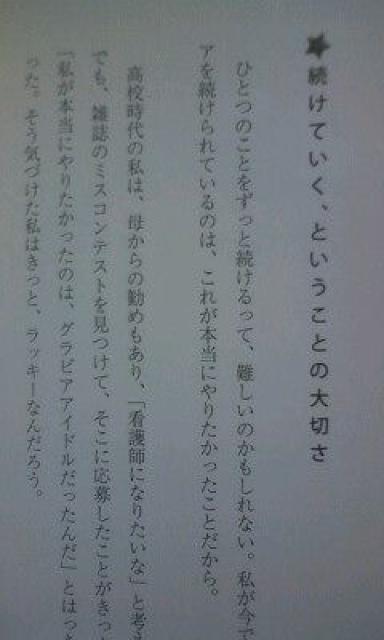 ★続けていく、ということの大切さ
ひとつのことをずっと続けるって、難しいのかもしれない。私が今で
アを続けられているのは、これが本当にやりたかったことだから。
高校時代の私は、母からの勧めもあり、「看護師になりたいな」と考え
でも、雑誌のミスコンテストを見つけて、そこに応募したことがきっ
「私が本当にやりたかったのは、グラビアアイドルだったんだ」とはっ
った。そう気づけた私はきっと、ラッキーなんだろう。